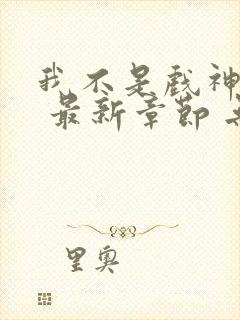 我不是戏神
最新章节
里奥